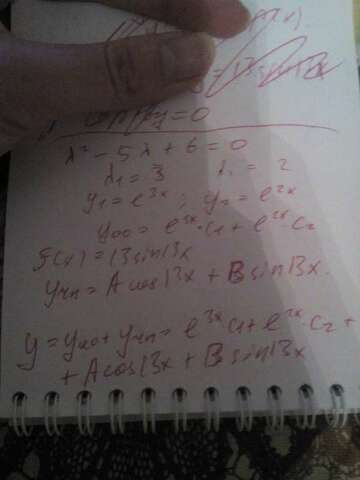 y=0
λ² - 5λ + 6 = 0
λ₁ = 3 λ = 2
y₁ = e³ˣ ; y₂ = e²ˣ
yоо = e³ˣ · c₁ + e²ˣ · c₂
f(x) = 13sin13x
yчн = A cos13x + B sin13x.
y = yоо + yчн = e³ˣ c₁ + e²ˣ · c₂ +
+ A cos13x + B sin13x